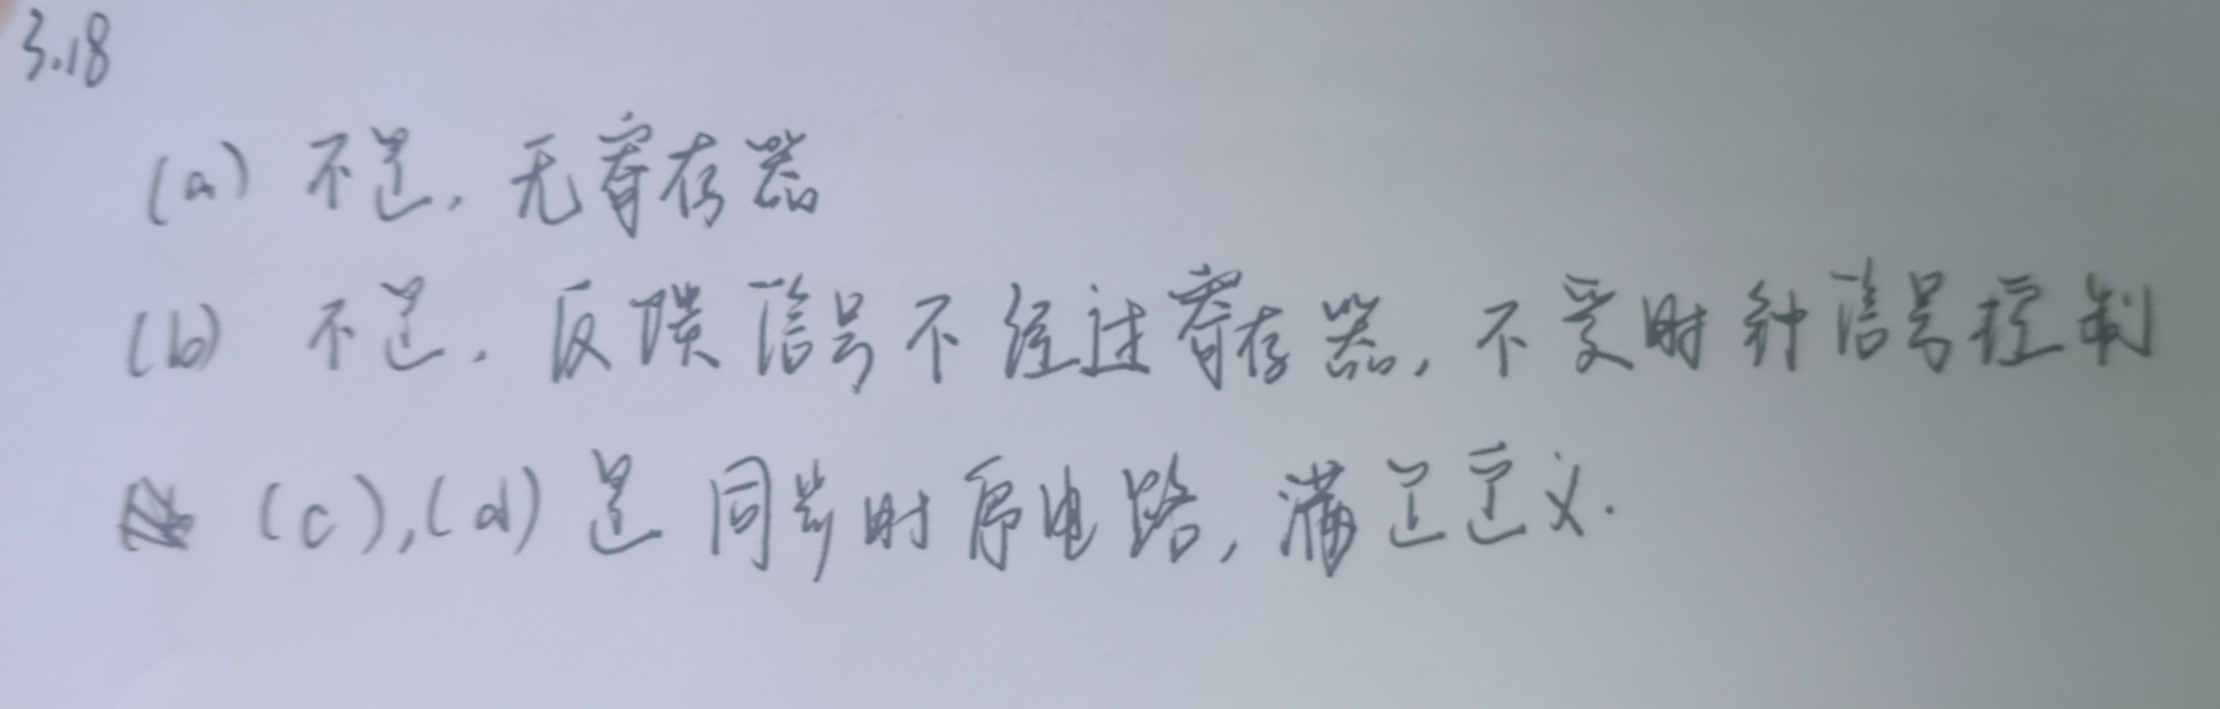 3.18
(a) 不是，无寄存器
(b) 不是，反馈信号不经过寄存器，不受时钟信号控制
(c),(d) 是同步时序电路，满足定义.